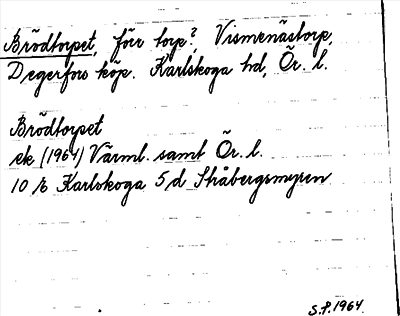 Brödtorpet, förr torp?, Vismenästorp,
Degerfors köp. Karlskoga hd, Ör. l.
Brödtorpet
ek (1964) Värml. samt Ör. l.
10 E Karlskoga 5/d Stråbergsmyren
S.P. 1964